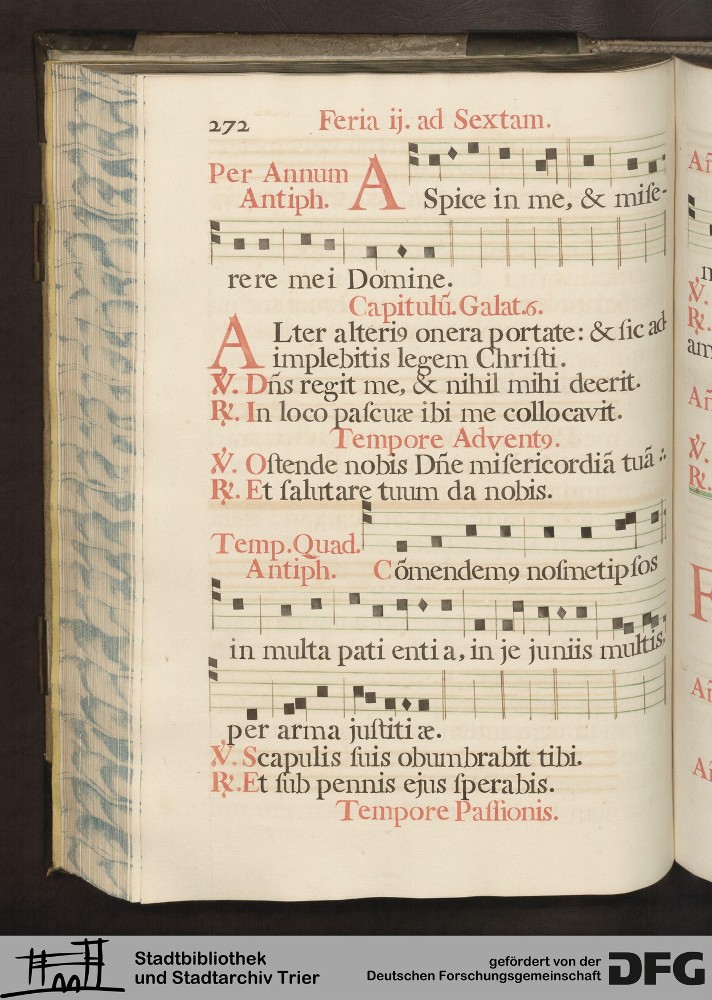 272 Feria ij. ad Sextam.
Per Annum
Antiph. ASpice in me, & miſe-
rere mei Domine.
Capitulũ. Galat. 6.
ALter alteriꝰ onera portate: & ſic ad-
implebitis legem Chriſti.
℣. Dñs regit me, & nihil mihi deerit.
℟. In loco paſcuæ ibi me collocavit.
Tempore Adventꝰ.
℣. Oſtende nobis Dñe miſericordiã tuã ∴
℟. Et ſalutare tuum da nobis.
Temp. Quad.
Antiph. Cõmendemꝰ noſmetipſos
in multa pati enti a, in je juniis multis,
per arma juſtiti æ.
℣. Scapulis ſuis obumbrabit tibi.
℟. Et ſub pennis ejus ſperabis.
Tempore Paſſionis.
Añ
℣.
℟.
am
Añ
℣.
℟.
F
Añ
Stadtbibliothek
und Stadtarchiv Trier
gefördert von der
Deutschen Forschungsgemeinschaft
DFG